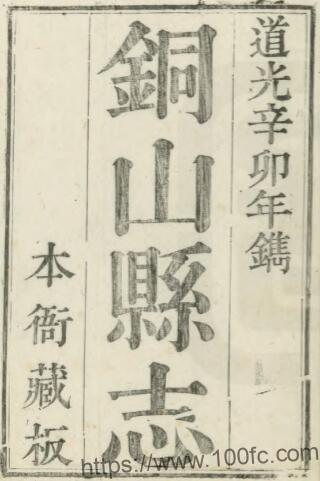 道光辛卯年鐫
銅山縣志
本衙藏板
https://www.100fc.com